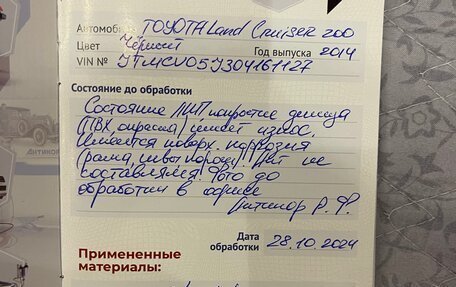 Автомобиль TOYOTA Land Cruiser 200
Цвет Чёрный Год выпуска 2014
VIN № JTMCV05J304161127
Состояние до обработки
Состояние ЛКП, покрытие днища
(ПВХ, окраска) имеет износ.
Имеется поверх. коррозия
(рама, швы, пороги) Акт не
составлялся. Фото до
обработки в офисе
Р. Ф.
Дата
обработки 28.10.2024
Примененные
материалы:
АНТИКОР